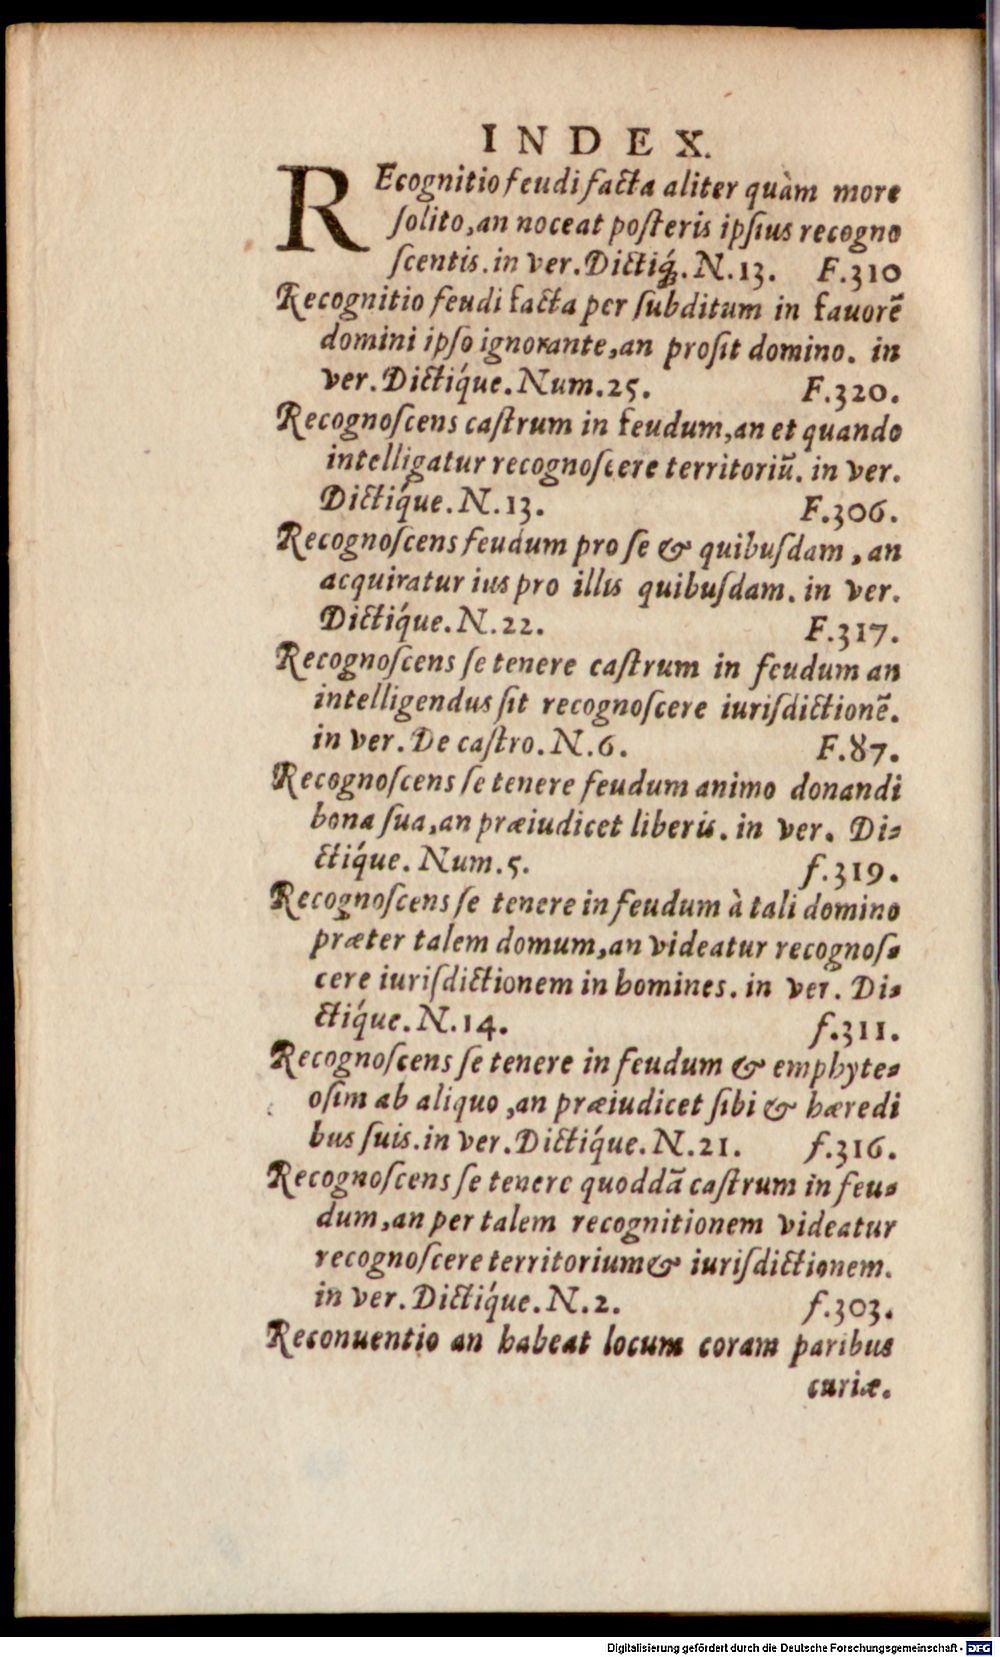 INDEX.
REcognitio feudi facta aliter quàm more
ſolito, an noceat poſteris ipſius recogno
ſcentis. in ver. Dictiq́;. N. 13. F. 310
Recognitio feudi facta per ſubditum in fauorē
domini ipſo ignorante, an proſit domino. in
ver. Dictiq́ue. Num. 25. F. 320.
Recognoſcens caſtrum in feudum, an et quando
intelligatur recognoſcere territoriū. in ver.
Dictiq́ue. N. 13. F. 306.
Recognoſcens feudum pro ſe & quibuſdam, an
acquiratur ius pro illis quibuſdam. in ver.
Dictiq́ue. N. 22. F. 317.
Recognoſcens ſe tenere caſtrum in feudum an
intelligendus ſit recognoſcere iuriſdictionē.
in ver. De caſtro. N. 6. F. 87.
Recognoſcens ſe tenere feudum animo donandi
bona ſua, an præiudicet liberis. in ver. Di=
ctiq́ue. Num. 5. f. 319.
Recognoſcens ſe tenere in feudum à tali domino
præter talem domum, an videatur recognoſ=
cere iuriſdictionem in homines. in ver. Di=
ctiq́ue. N. 14. f. 311.
Recognoſcens ſe tenere in feudum & emphyte=
oſim ab aliquo, an præiudicet ſibi & hæredi
bus ſuis. in ver. Dictiq́ue. N. 21. f. 316.
Recognoſcens ſe tenere quoddā caſtrum in feu=
dum, an per talem recognitionem videatur
recognoſcere territorium & iuriſdictionem.
in ver. Dictiq́ue. N. 2. f. 303.
Reconuentio an habeat locum coram paribus
curiæ.
Digitalisierung gefördert durch die Deutsche Forschungsgemeinschaft - DFG